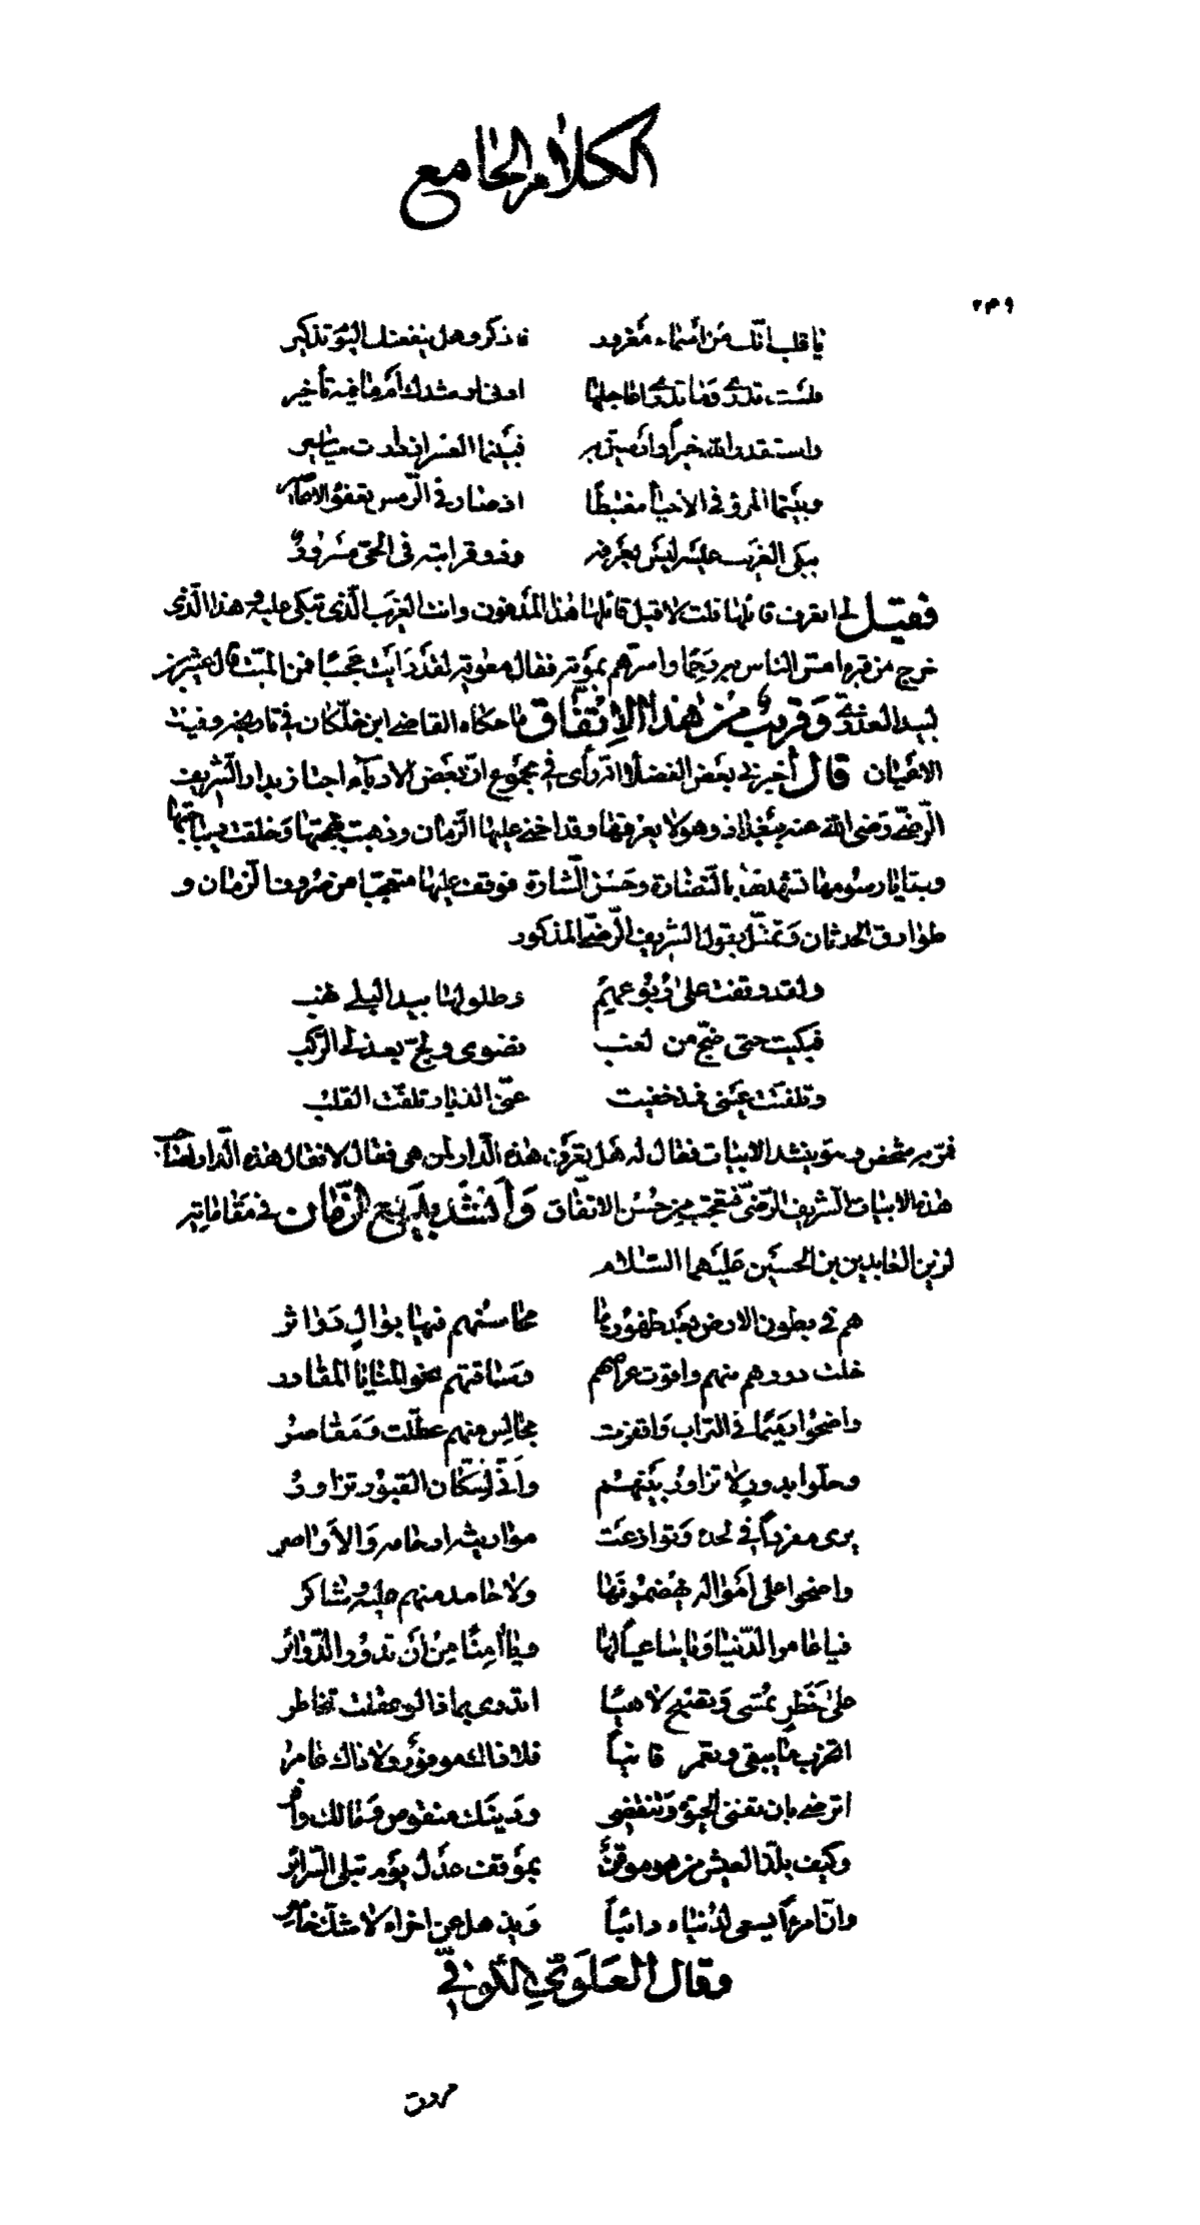 الكلام الجامع
٢٣٩
يا قلب انّك من أسماء مغرور فاذكر وهل ينفعنك اليوم تذكير
فلست تدرى وما تدرى اعاجلها ادنى لرشدك أم ما فيه تأخير
واستقدر الله خيرا وارضين به فبينما العسر اذ دارت مياسير
وبينما المرؤ فى الاحياء مغتبطا اذ صار فى الرّمس تعفوه الاعاصير
يبكى الغريب عليه ليس يعرفه وذو قرابته فى الحىّ مسرور
فقيل لى اتعرف قائلها قلت لا قيل قائلها هذا المدفون وانت الغريب الّذى تبكى عليه وهذا الّذى
خرج من قبره امس الناس به رحما واسرّهم بموته فقال معوية لقد رايت عجبا فمن الميت قال عثير بن
لبيد العذرى وقريب من هذا الاتّفاق ما حكاه القاضى ابن خلّكان فى تاريخه وفيات
الاعيان قال أخبرنى بعض الفضلاء انّه رأى فى مجموع انّ بعض الادباء اجتاز بدار الشّريف
الرّضى رضى الله عنه ببغداد وهو لا يعرفها وقد اخنى عليها الزّمان وذهبت بهجتها وخلقت ديباجتها
وبقايا رسومها تشهد لها بالنّضارة وحسن الشّارة فوقف عليها متعجّبا من صروف الزمان و
طوارق الحدثان وتمثّل بقول الشريف الرّضى المذكور
ولقد وقفت على ربوعهم وطلولها بيد البلى نهب
فبكيت حتى ضجّ من لغب نضوى ولجّ بعذلى الرّكب
وتلفّتت عينى فمذ خفيت عنّى الديار تلفّت القلب
فمرّ به شخص وهو ينشد الابيات فقال له هل تعرف هذه الدّار لمن هى فقال لا فقال هذه الدّار لصاحب
هذه الابيات الشريف الرّضىّ فتعجّب من حسن الاتّفاق وأنشد بديع الزّمان فى مقاماته
لزين العابدين بن الحسين عليهما السّلام
هم فى بطون الارض بعد ظهورها محاسنهم فيها بوال دواثر
خلت دورهم منهم واقوت عراصهم وساقتهم نحو المنايا المقادر
واضحوا رميما فى التراب واقفرت مجالس منهم عطّلت ومقاصر
وحلّوا بدور لا تزاور بينهم وأنّى لسكّان القبور تزاور
يرى مفردا فى لحده وتوازعت مواريثه ارحامه والاواصر
واضحوا على أمواله يخضمونها ولا حامد منهم عليه وشاكر
فيا عامر الدّنيا ويا ساعيا لها ويا آمنا من ان تدور الدّوائر
على خطر تمسى وتصبح لاهيا اتدرى بماذا لو عقلت تخاطر
اتخرب ما يبقى وتعمر فانيا فلا ذاك موفور ولا ذاك عامر
اترضى بان تفنى الحيوة وتنقضى ودينك منقوص ومالك وافر
وكيف يلذّ العيش من هو موقن بموقف عدل يوم تبلى السّرائر
وانّ امرءا يسعى لدنياه دائبا ويذهل عن اخراه لا شكّ خاسر
وقال العلوىّ الكوفىّ